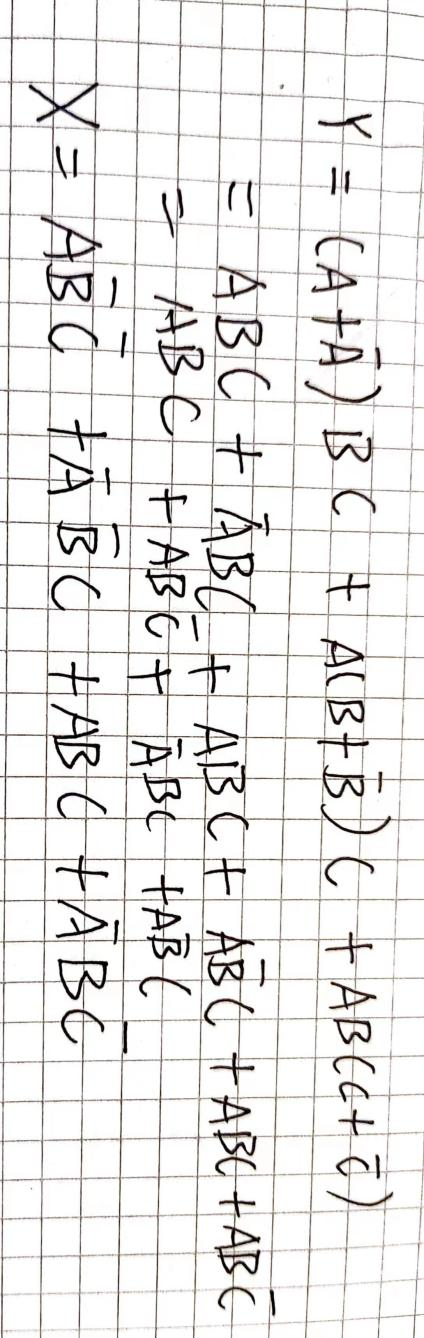 Y = (A+Ā)BC + A(B+B̄)C + AB(C+C̄)
= ABC + ĀBC + ABC + AB̄C + ABC + ABC̄
= ABC + ABC̄ + ĀBC + AB̄C
X = AB̄C̄ + ĀB̄C + ABC + ĀBC̄